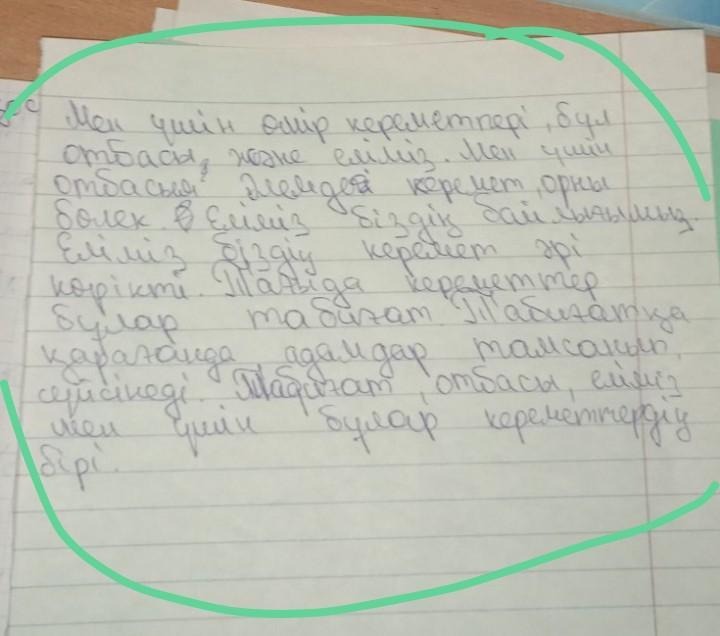 Мен үшін өмір кереметтері, бұл
отбасы, және еліміз. Мен үшін
отбасы әлемдегі керемет, орны
бөлек. Еліміз біздің байлығымыз.
Еліміз біздің керемет әрі
көрікті. Тағыда кереметтер
бұлар табиғат. Табиғатқа
қарағанда адамдар тамсанып,
сүйсінеді. Табиғат, отбасы, еліміз
мен үшін бұлар кереметтердің
бірі.